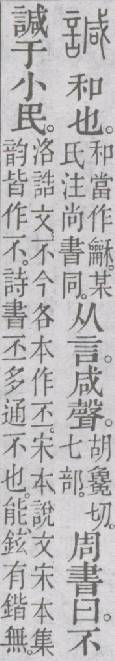 諴 和也。和當作龢。某氏注尚書同。从言。咸聲。胡毚切。七部。周書曰。不
諴于小民。洛誥文。不今各本作丕。宋本說文宋本集韵皆作不。詩書丕多通不也。能鉉有鍇無。